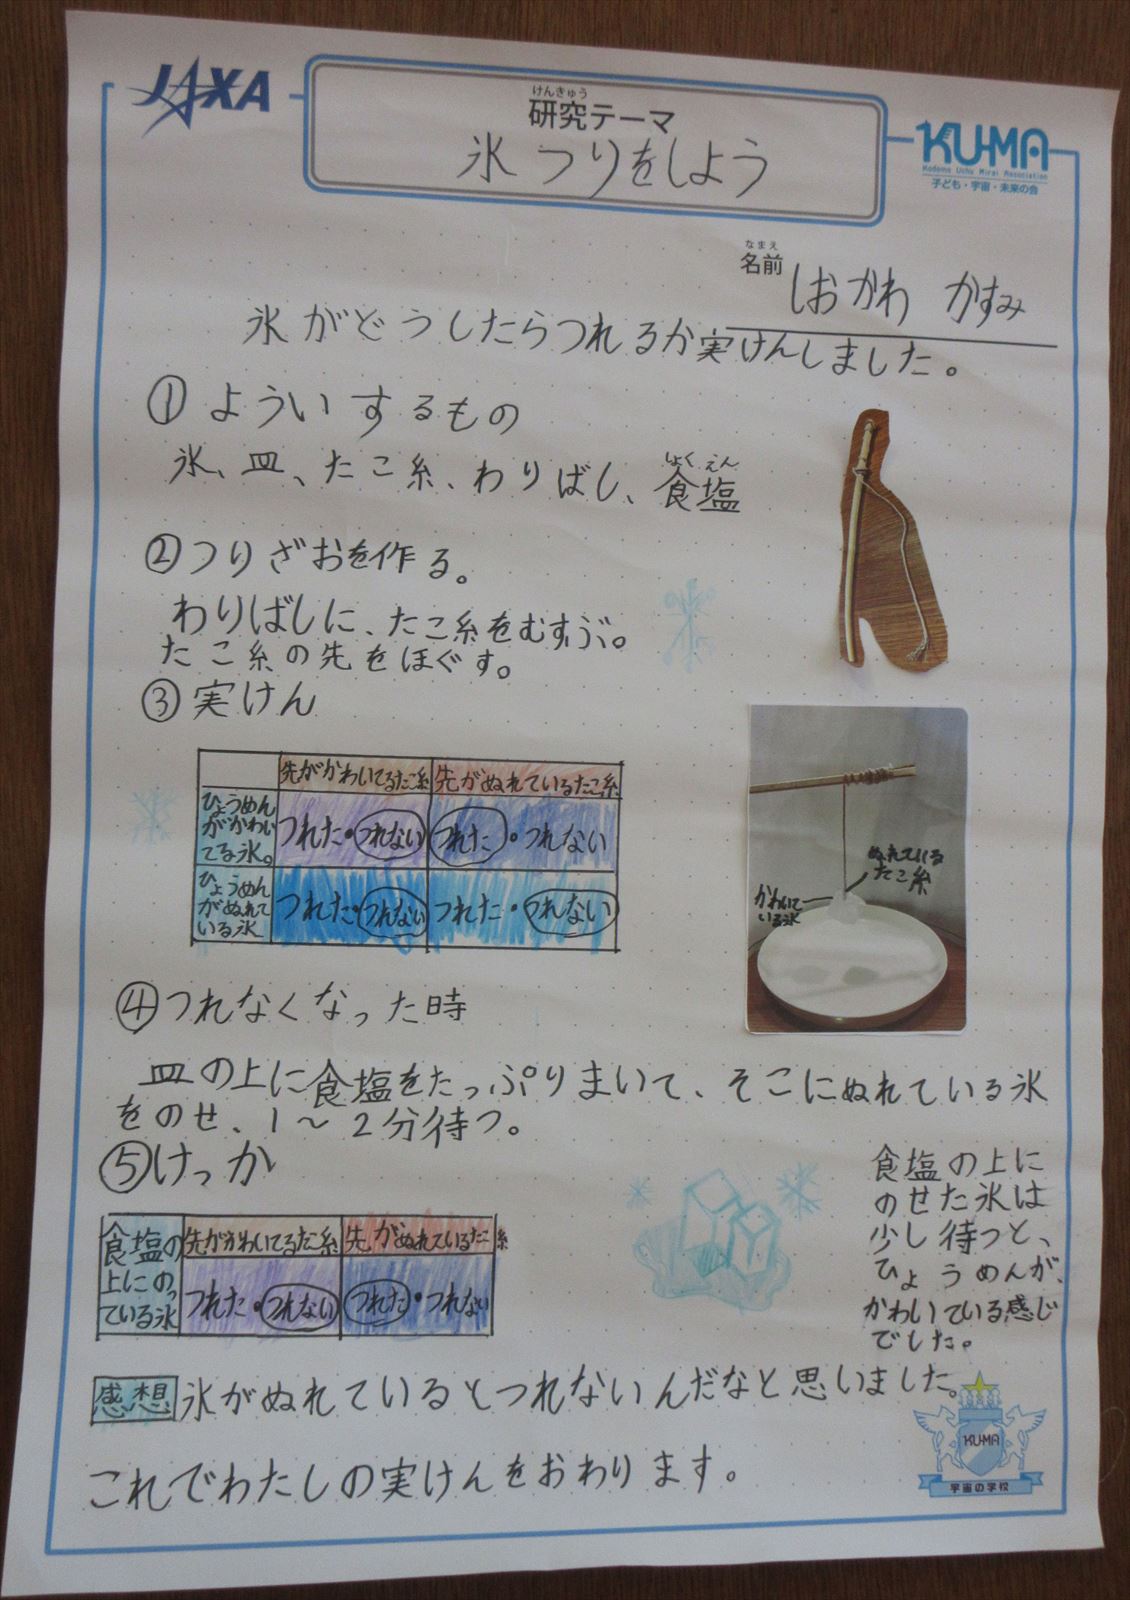 JAXA
けんきゅう
研究テーマ
氷つりをしよう
KU-MA
Kodomo Uchu Mirai Association
子ども・宇宙・未来の会
なまえ
名前 しおかわ かすみ
氷がどうしたらつれるか実けんしました。
①よういするもの
氷、皿、たこ糸、わりばし、食塩
しょくえん
②つりざおを作る。
わりばしに、たこ糸をむすぶ。
たこ糸の先をほぐす。
③実けん
先がかわいてるたこ糸 先がぬれているたこ糸
ひょうめん
がかわい
てる氷。
つれた・つれない つれた・つれない
ひょうめん
がぬれて
いる氷
つれた・つれない つれた・つれない
ぬれている
たこ糸
かわいて
いる氷
④つれなくなった時
皿の上に食塩をたっぷりまいて、そこにぬれている氷
をのせ、1〜2分待つ。
⑤けっか
食塩の
上にのっ
ている氷
先がかわいてるたこ糸 先がぬれているたこ糸
つれた・つれない つれた・つれない
食塩の上に
のせた氷は
少し待つと、
ひょうめんが、
かわいている感じ
でした。
感想 氷がぬれているとつれないんだなと思いました。
これでわたしの実けんをおわります。
KU-MA
宇宙の学校